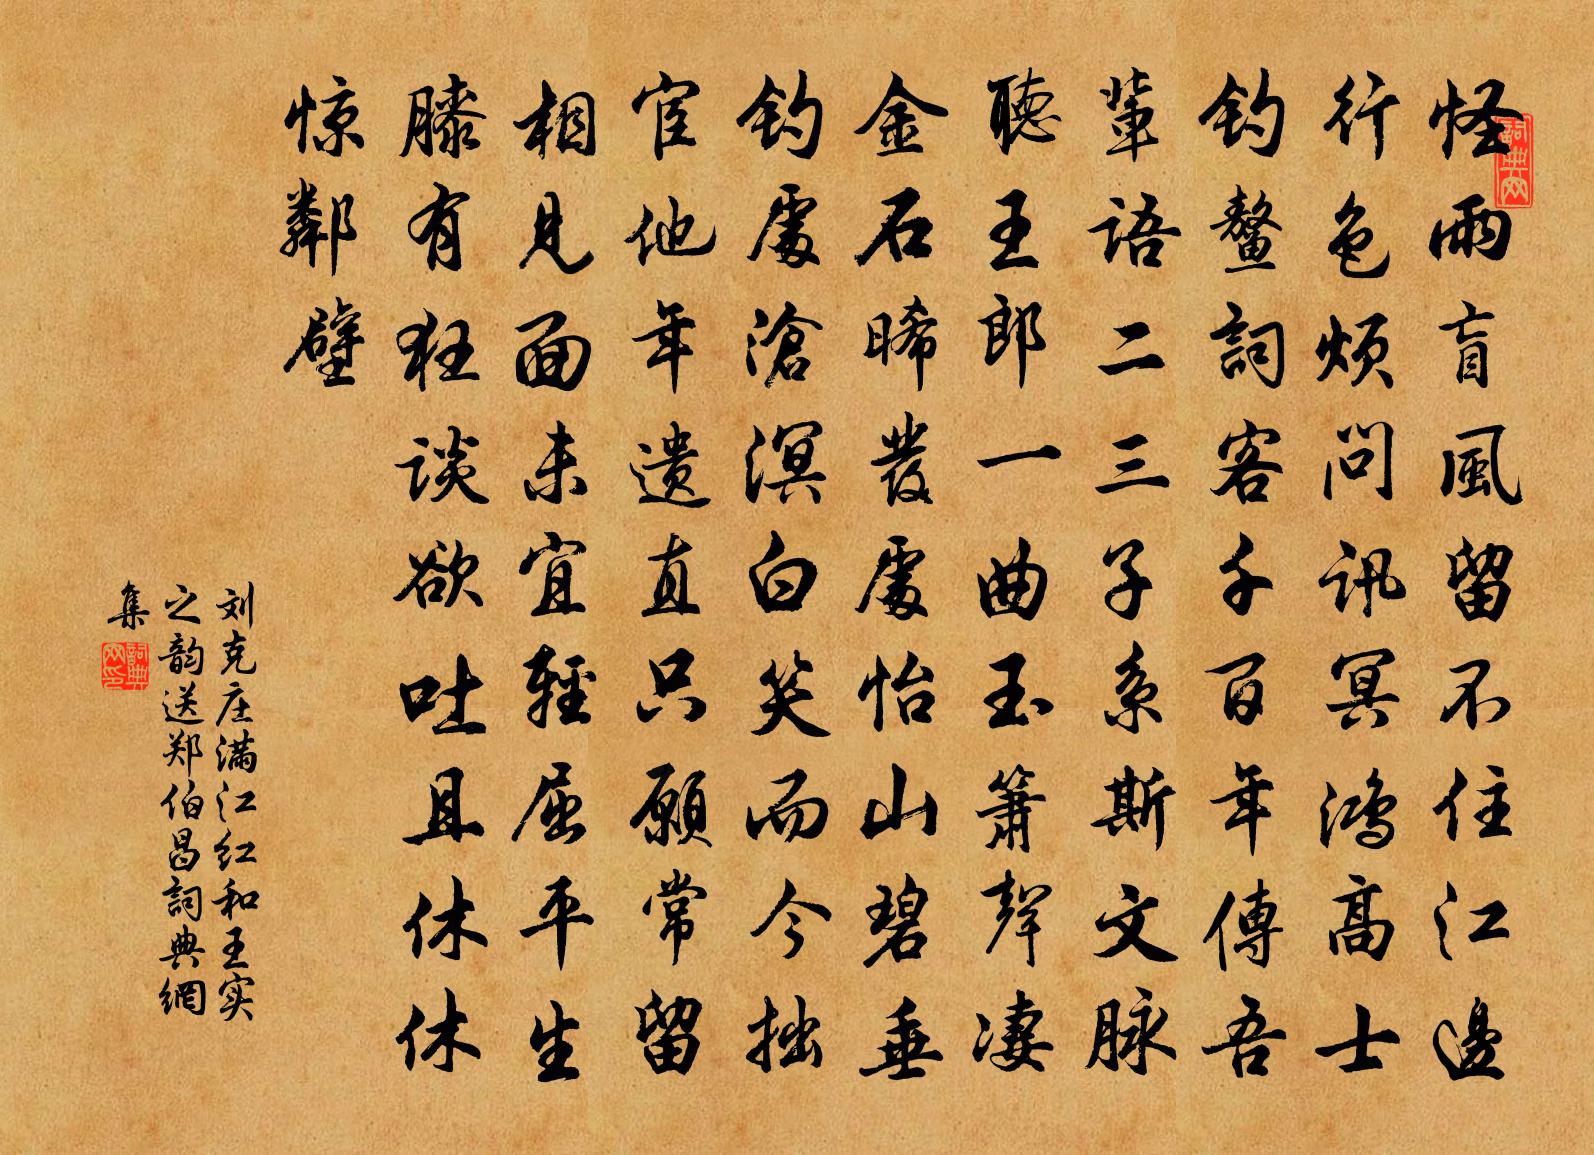 怪雨盲風留不住江邊
行色煩問訊冥鴻高士
釣鰲詞客千百年傳吾
輩語二三子系斯文脉
聽王郎一曲玉簫聲凄
金石晞發處怡山碧垂
釣處滄溟白笑而今拙
宦他年遗直只願常留
相見面未宜輕屈平生
膝有狂谈欲吐且休休
惊鄰壁
刘克庄满江红和王实
之韵送郑伯昌詞典網
集
詞典网
詞典网印